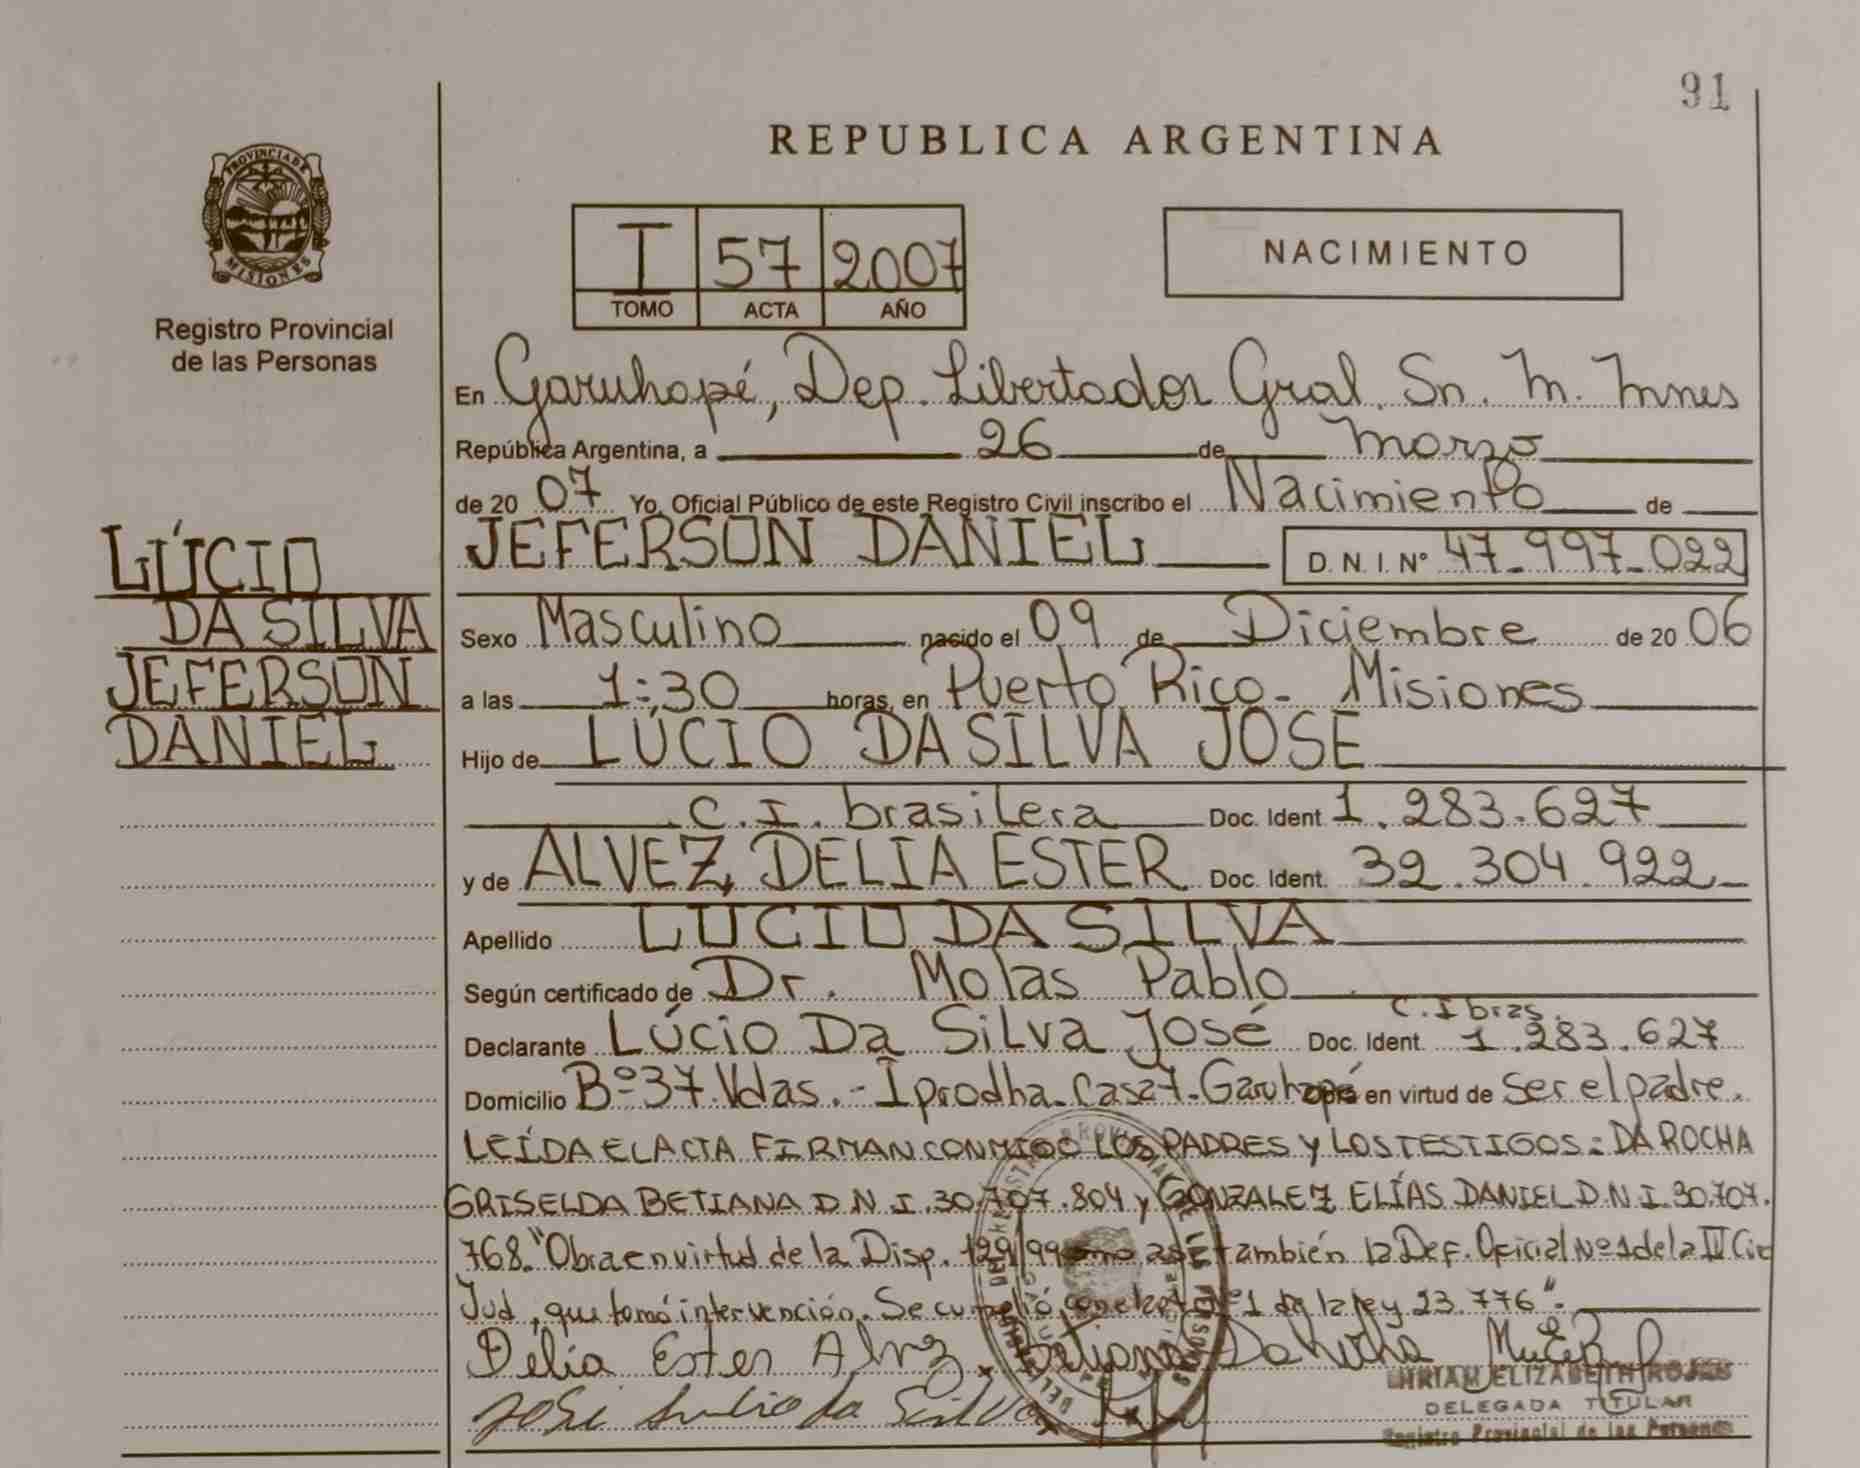 91
REPUBLICA ARGENTINA
PROVINCIA DE
MISIONES
Registro Provincial
de las Personas
I 57 2007
TOMO ACTA AÑO
NACIMIENTO
En Garuhapé, Dep. Libertador Gral. Sn. M. Mnes
República Argentina, a 26 de Marzo
de 20 07 Yo, Oficial Público de este Registro Civil inscribo el Nacimiento de
JEFERSON DANIEL D.N.I. Nº 47.997.022
LÚCIO
DA SILVA
JEFERSON
DANIEL
Sexo Masculino nacido el 09 de Diciembre de 20 06
a las 1:30 horas, en Puerto Rico - Misiones
Hijo de LÚCIO DA SILVA JOSE
C.I. brasilera Doc. Ident 1.283.627
y de ALVEZ, DELIA ESTER Doc. Ident. 32.304.922
Apellido LUCIO DA SILVA
Según certificado de Dr. Molas Pablo
C.I bras.
Declarante Lúcio Da Silva José Doc. Ident. 1.283.627
Domicilio Bº 37 Vdas. - Iprodha - Casa 7 - Garuhapé en virtud de ser el padre.
LEÍDA EL ACTA FIRMAN CONMIGO LOS PADRES Y LOS TESTIGOS: DA ROCHA
GRISELDA BETIANA D.N.I. 30.707.804 y GONZALEZ ELÍAS DANIEL D.N.I. 30.707.
768. "Obra en virtud de la Disp. 129/99 también la Def. Oficial Nº 1 de la IV Circ
Jud, que tomó intervención. Se cumplió con el Nº 1 de la ley 23.776".
Delia Ester Alvez Betiana Da Rocha
José Lucio da Silva
MIRIAM ELIZABETH ROJAS
DELEGADA TITULAR
Registro Provincial de las Personas